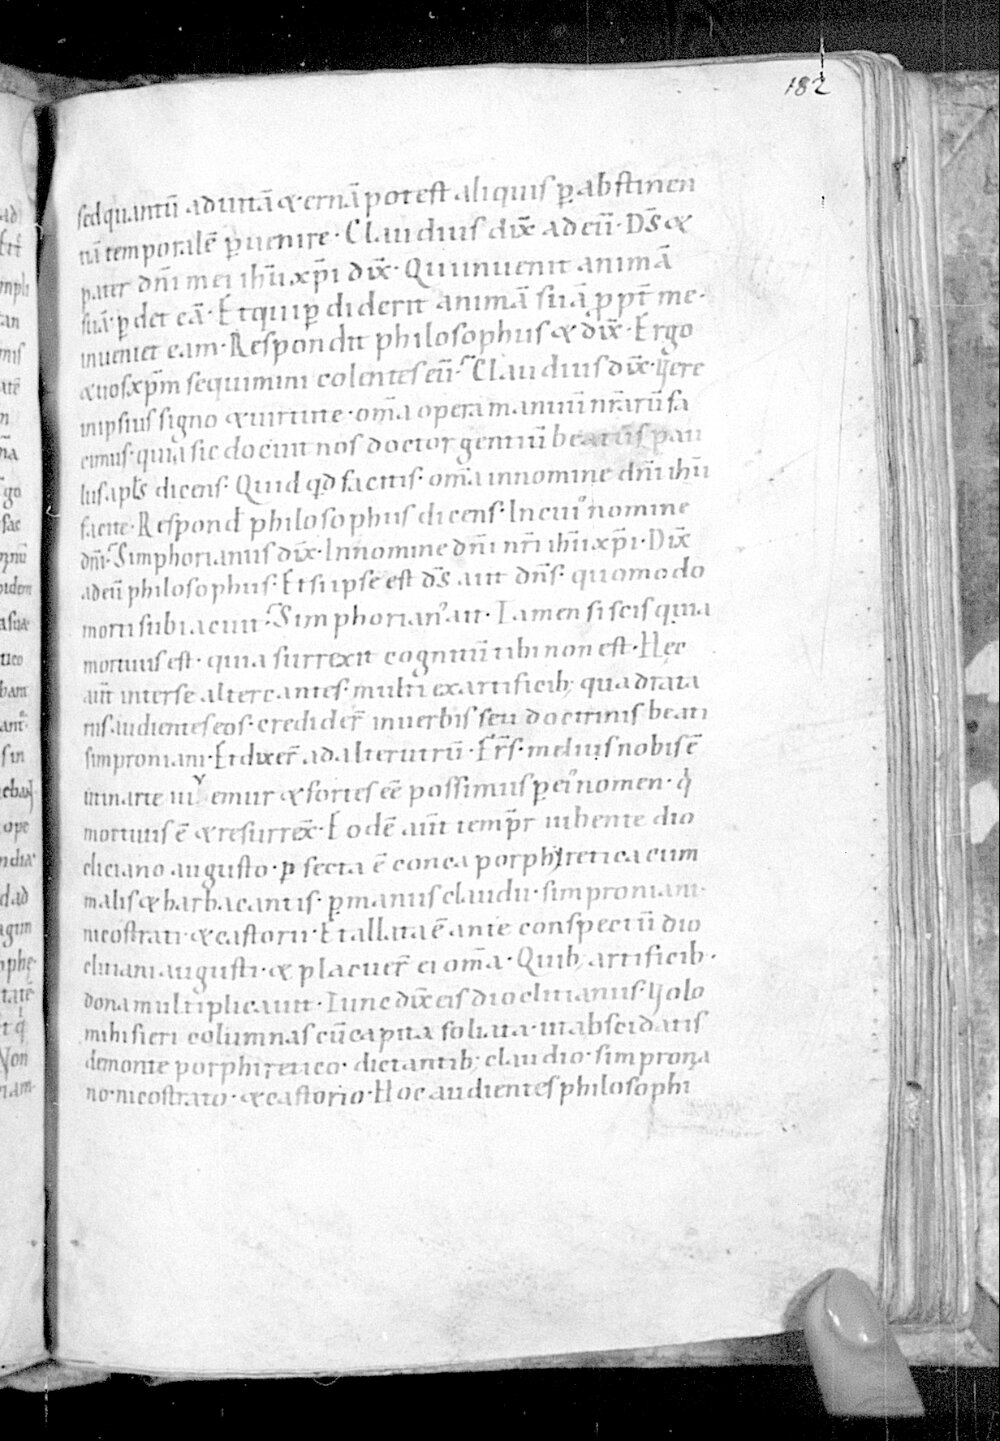 182
sed quantū ad uitā &ernā potest aliquis ꝑ abstinen
tiā temporalē ꝑuenire· Claudius dix̄ ad eū· Ds̄ &
pater dn̄i mei ihū xp̄i dix̄· Qui inuenit animā
suā· ꝑdet eā· Et qui ꝑdiderit animā suā ꝓpt̄ me·
inueniet eam· Respondit philosophus & dix̄· Ergo
& uos xp̄m sequimini colentes eū· Claudius dix̄· Vere
in ipsius signo & uirtute· om̄a opera manuū nr̄arū fa
cimus· quia sic docuit nos doctor gentiū beatus pau
lus apl̄s dicens· Quid qd facitis· om̄a in nomine dn̄i ihū
facite· Respond̄ philosophus dicens· In cuiꝰ nomine
dn̄i· Simphorianus dix̄· In nomine dn̄i nr̄i ihū xp̄i· Dix̄
ad eū philosophus· Et si ipse est ds̄ aut dn̄s· quomodo
morti subiacuit· Simphorianꝰ ait· Tamen si scis quia
mortuus est· quia surrexit cognitū tibi non est· Hec
aūt inter se altercantes· multi ex artificib; quadrata
riis audientes eos· credider̄ in uerbis seu doctrinis beati
simproniani· Et dixer̄ ad alterutrū· Fr̄s· melius nobis ē
ut in arte uiuemur & fortes eē possimus ꝑ eiꝰ nomen· q̇
mortuus ē & resurrex̄· Eodē aūt temp̄r iubente dio
cliciano augusto· p secta ē conca porphiretica cum
malis & harbacantis· ꝑ manus claudii· simproniani·
nicostrati· & castorii· Et allata ē ante conspectū dio
clitiani augusti· & placuer̄ ei om̄a· Quib; artificib·
dona multiplicauit· Tunc dix̄ eis dioclitianus· Volo
mihi fieri columnas cū capita foliata· ut abscidatis
de monte porphiretico· dictantib; claudio· simprona
no· nicostrato· & castorio· Hoc audientes philosophi